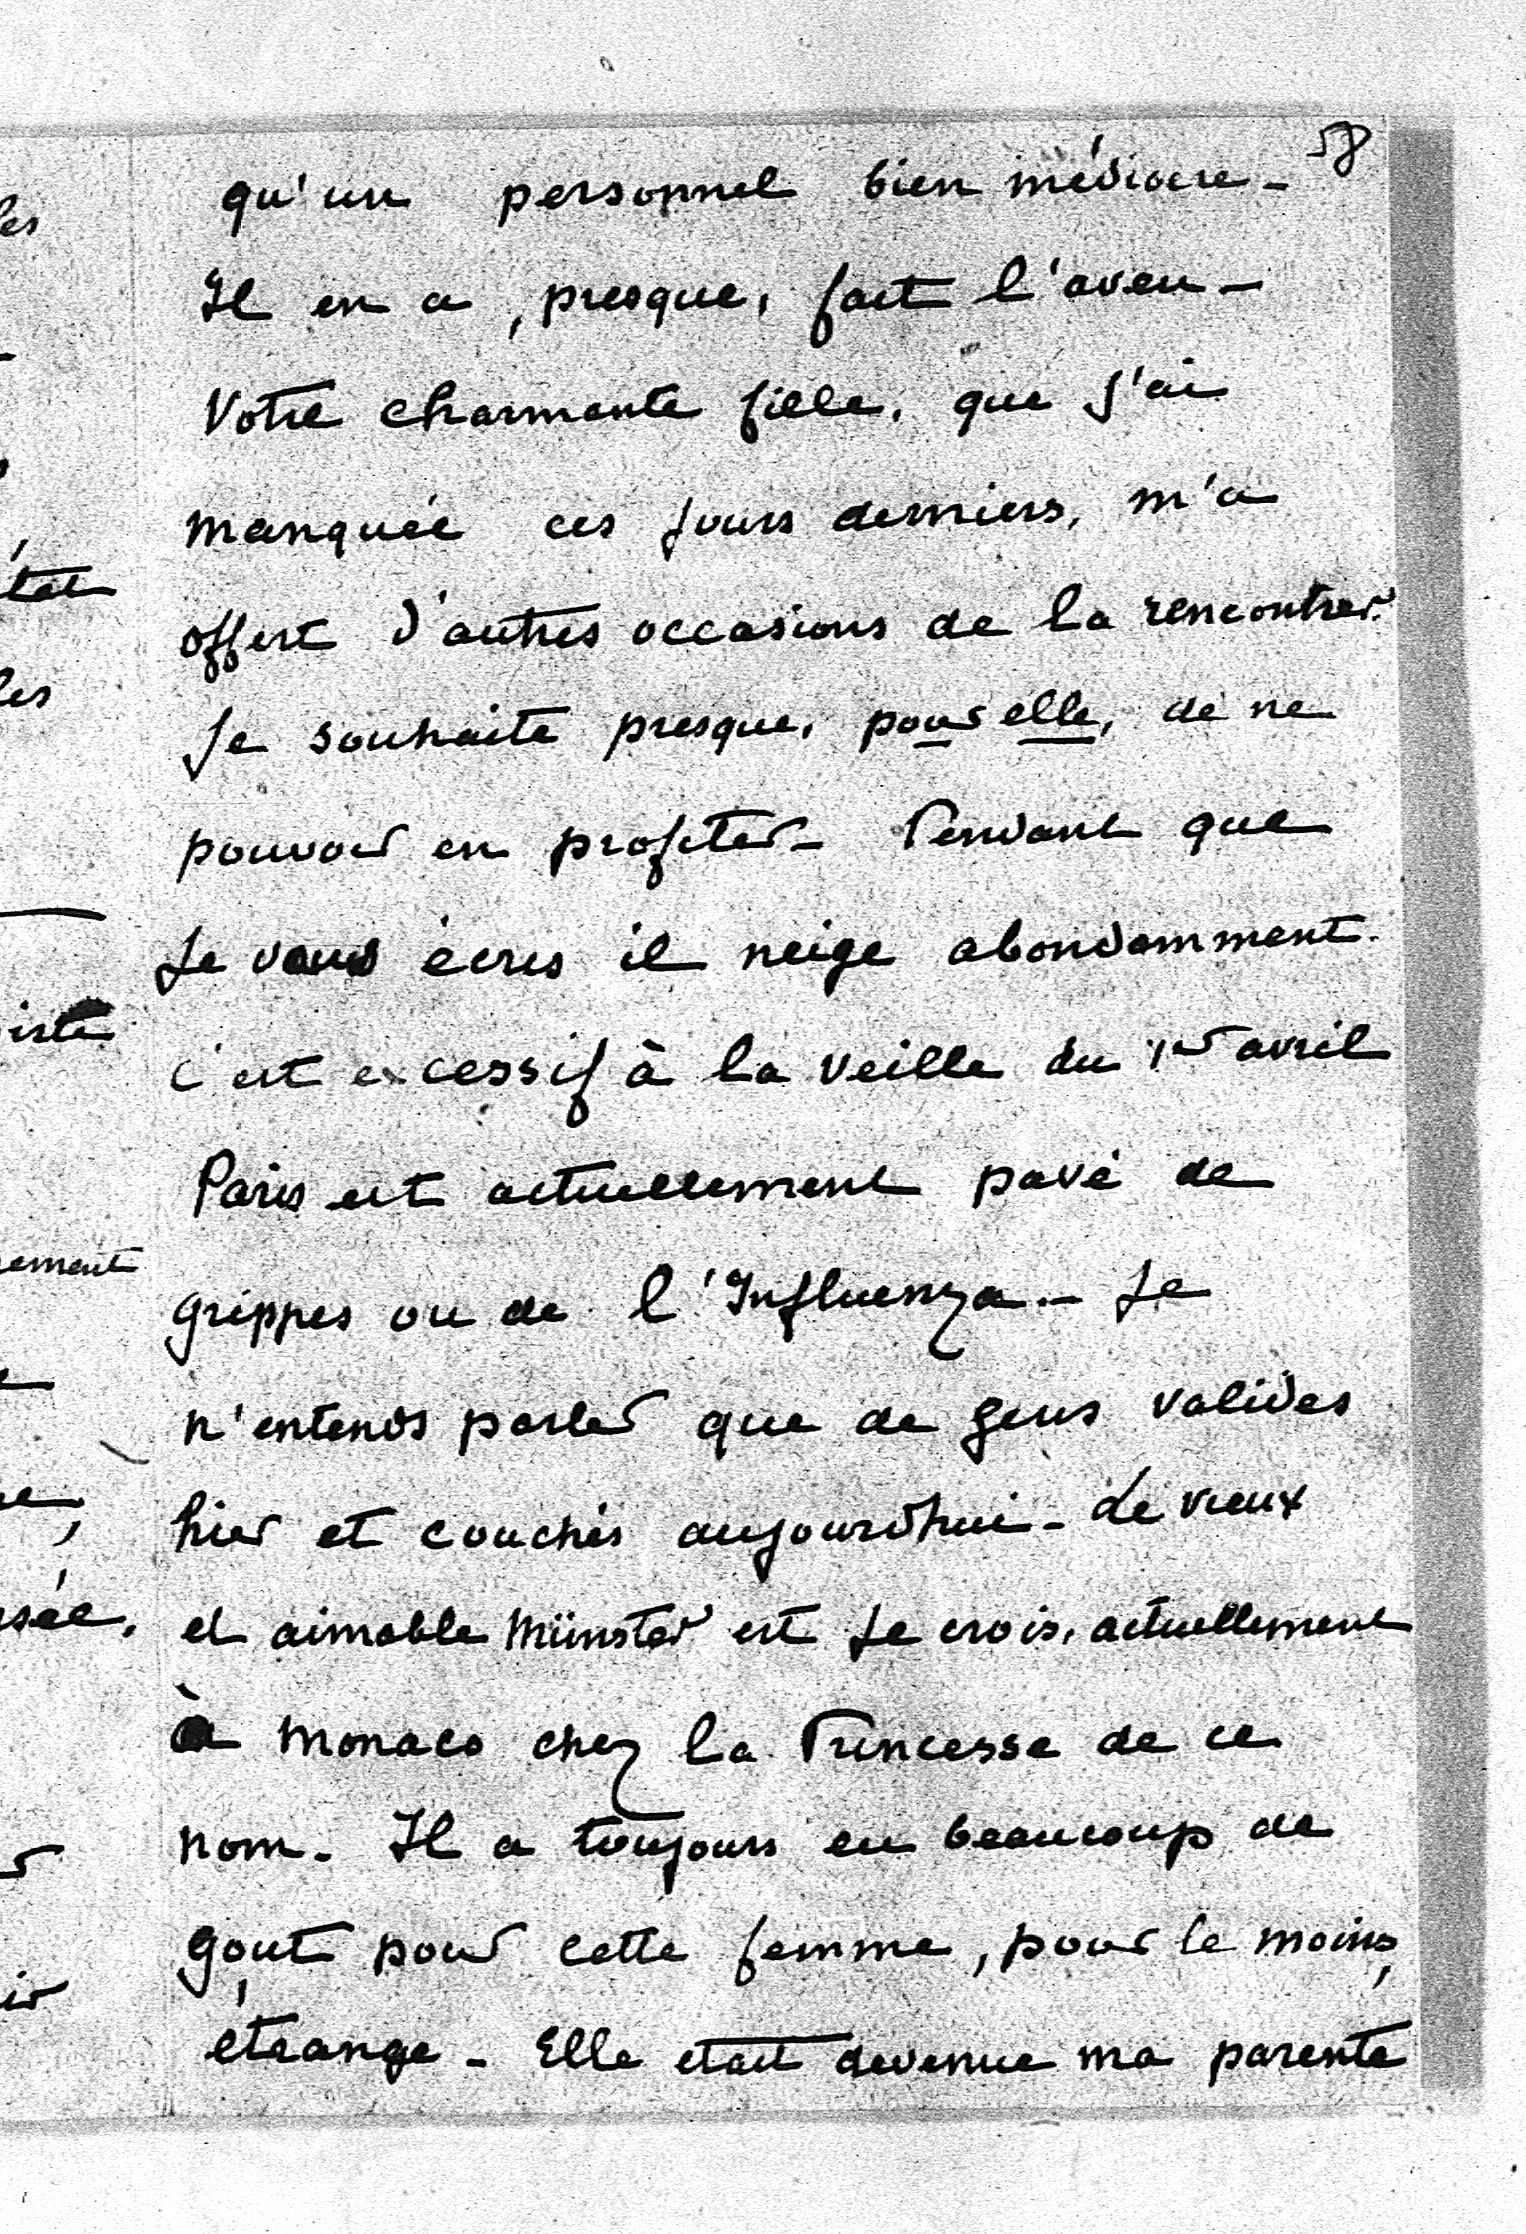 58
qu'un personnel bien médiocre -
Il en a, presque, fait l'aveu -
Votre charmante fille, que j'ai
manquée ces jours derniers, m'a
offert d'autres occasions de la rencontrer.
Je souhaite presque, pour elle, de ne
pouvoir en profiter - Pendant que
je vous écris il neige abondamment.
C'est excessif à la veille du 1er avril
Paris est actuellement pavé de
grippes ou de l'Influenza. - Je
n'entends parler que de gens valides
hier et couchés aujourd'hui - Le vieux
et aimable Münster est je crois, actuellement
à Monaco chez la Princesse de ce
nom. Il a toujours eu beaucoup de
gout pour cette femme, pour le moins,
étrange - Elle etait devenue ma parente
les
les
iste
ement
sée,